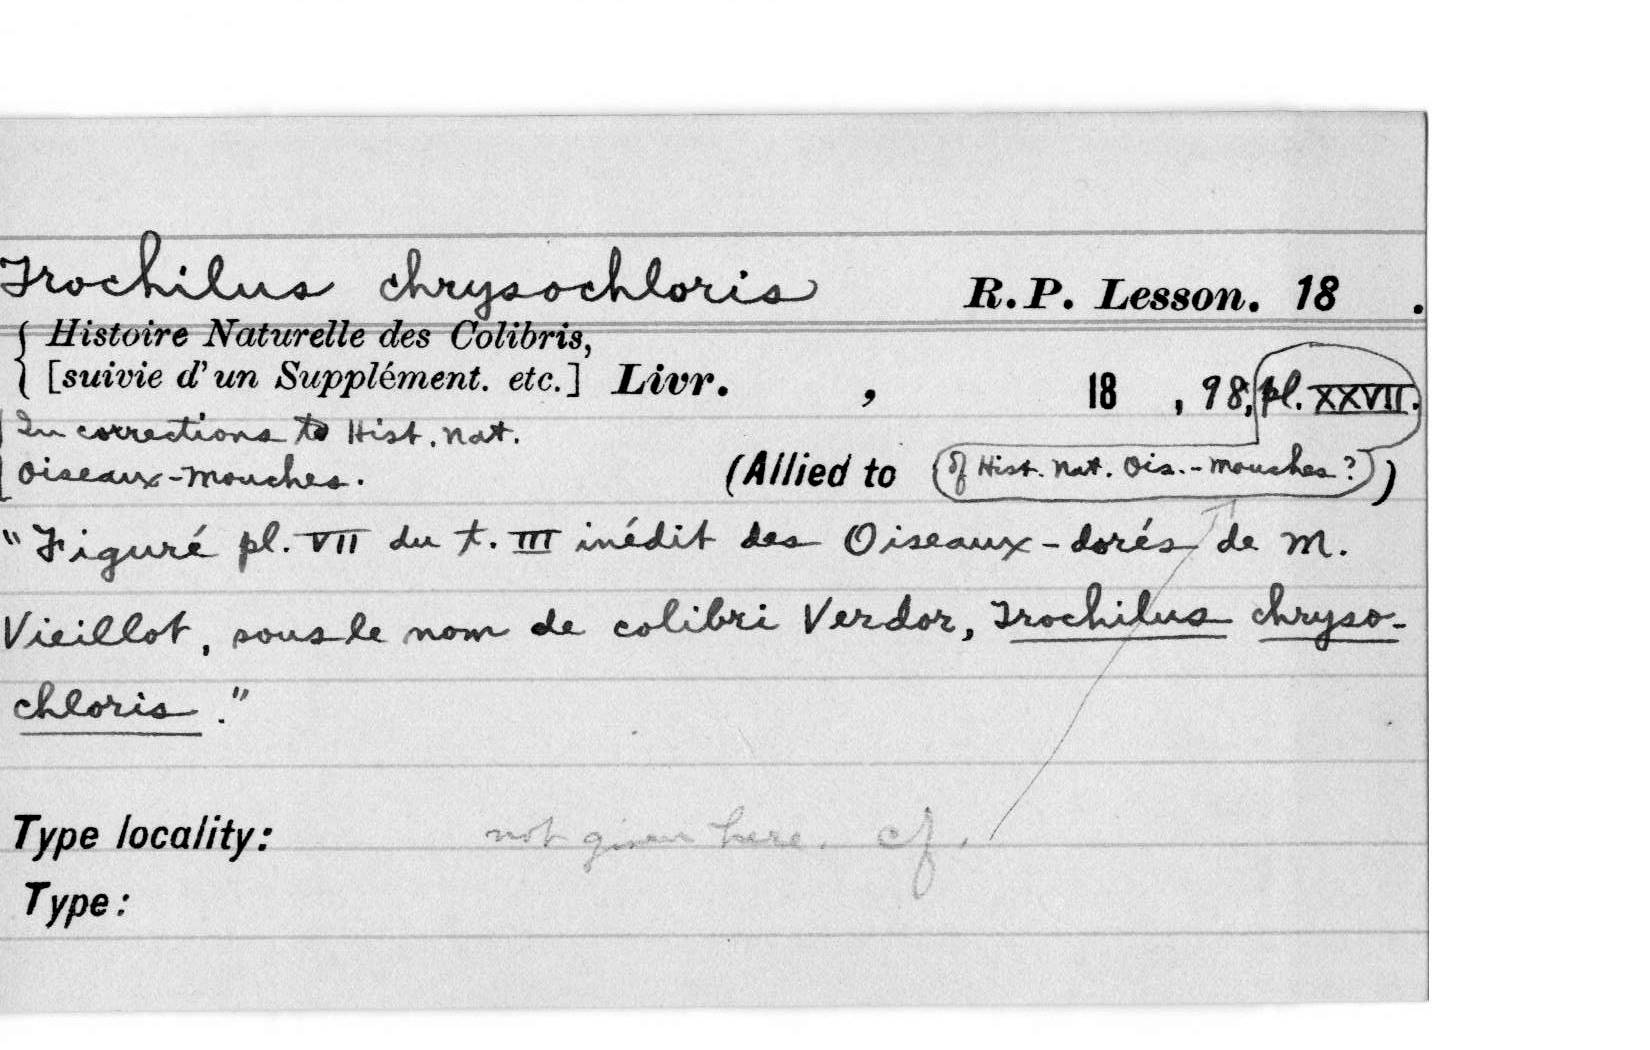 Trochilus chrysochloris R.P. Lesson. 18 .
{ Histoire Naturelle des Colibris,
[suivie d'un Supplément. etc.] Livr. , 18 , 98, pl. XXVII.
[In corrections to Hist. Nat.
Oiseaux-Mouches. (Allied to (of Hist. Nat. Ois.-Mouches?))
"Figuré pl. VII du t. III inédit des Oiseaux-dorés de M.
Vieillot, sous le nom de colibri Verdor, Trochilus chryso-
chloris."
Type locality: not given here. cf.
Type: